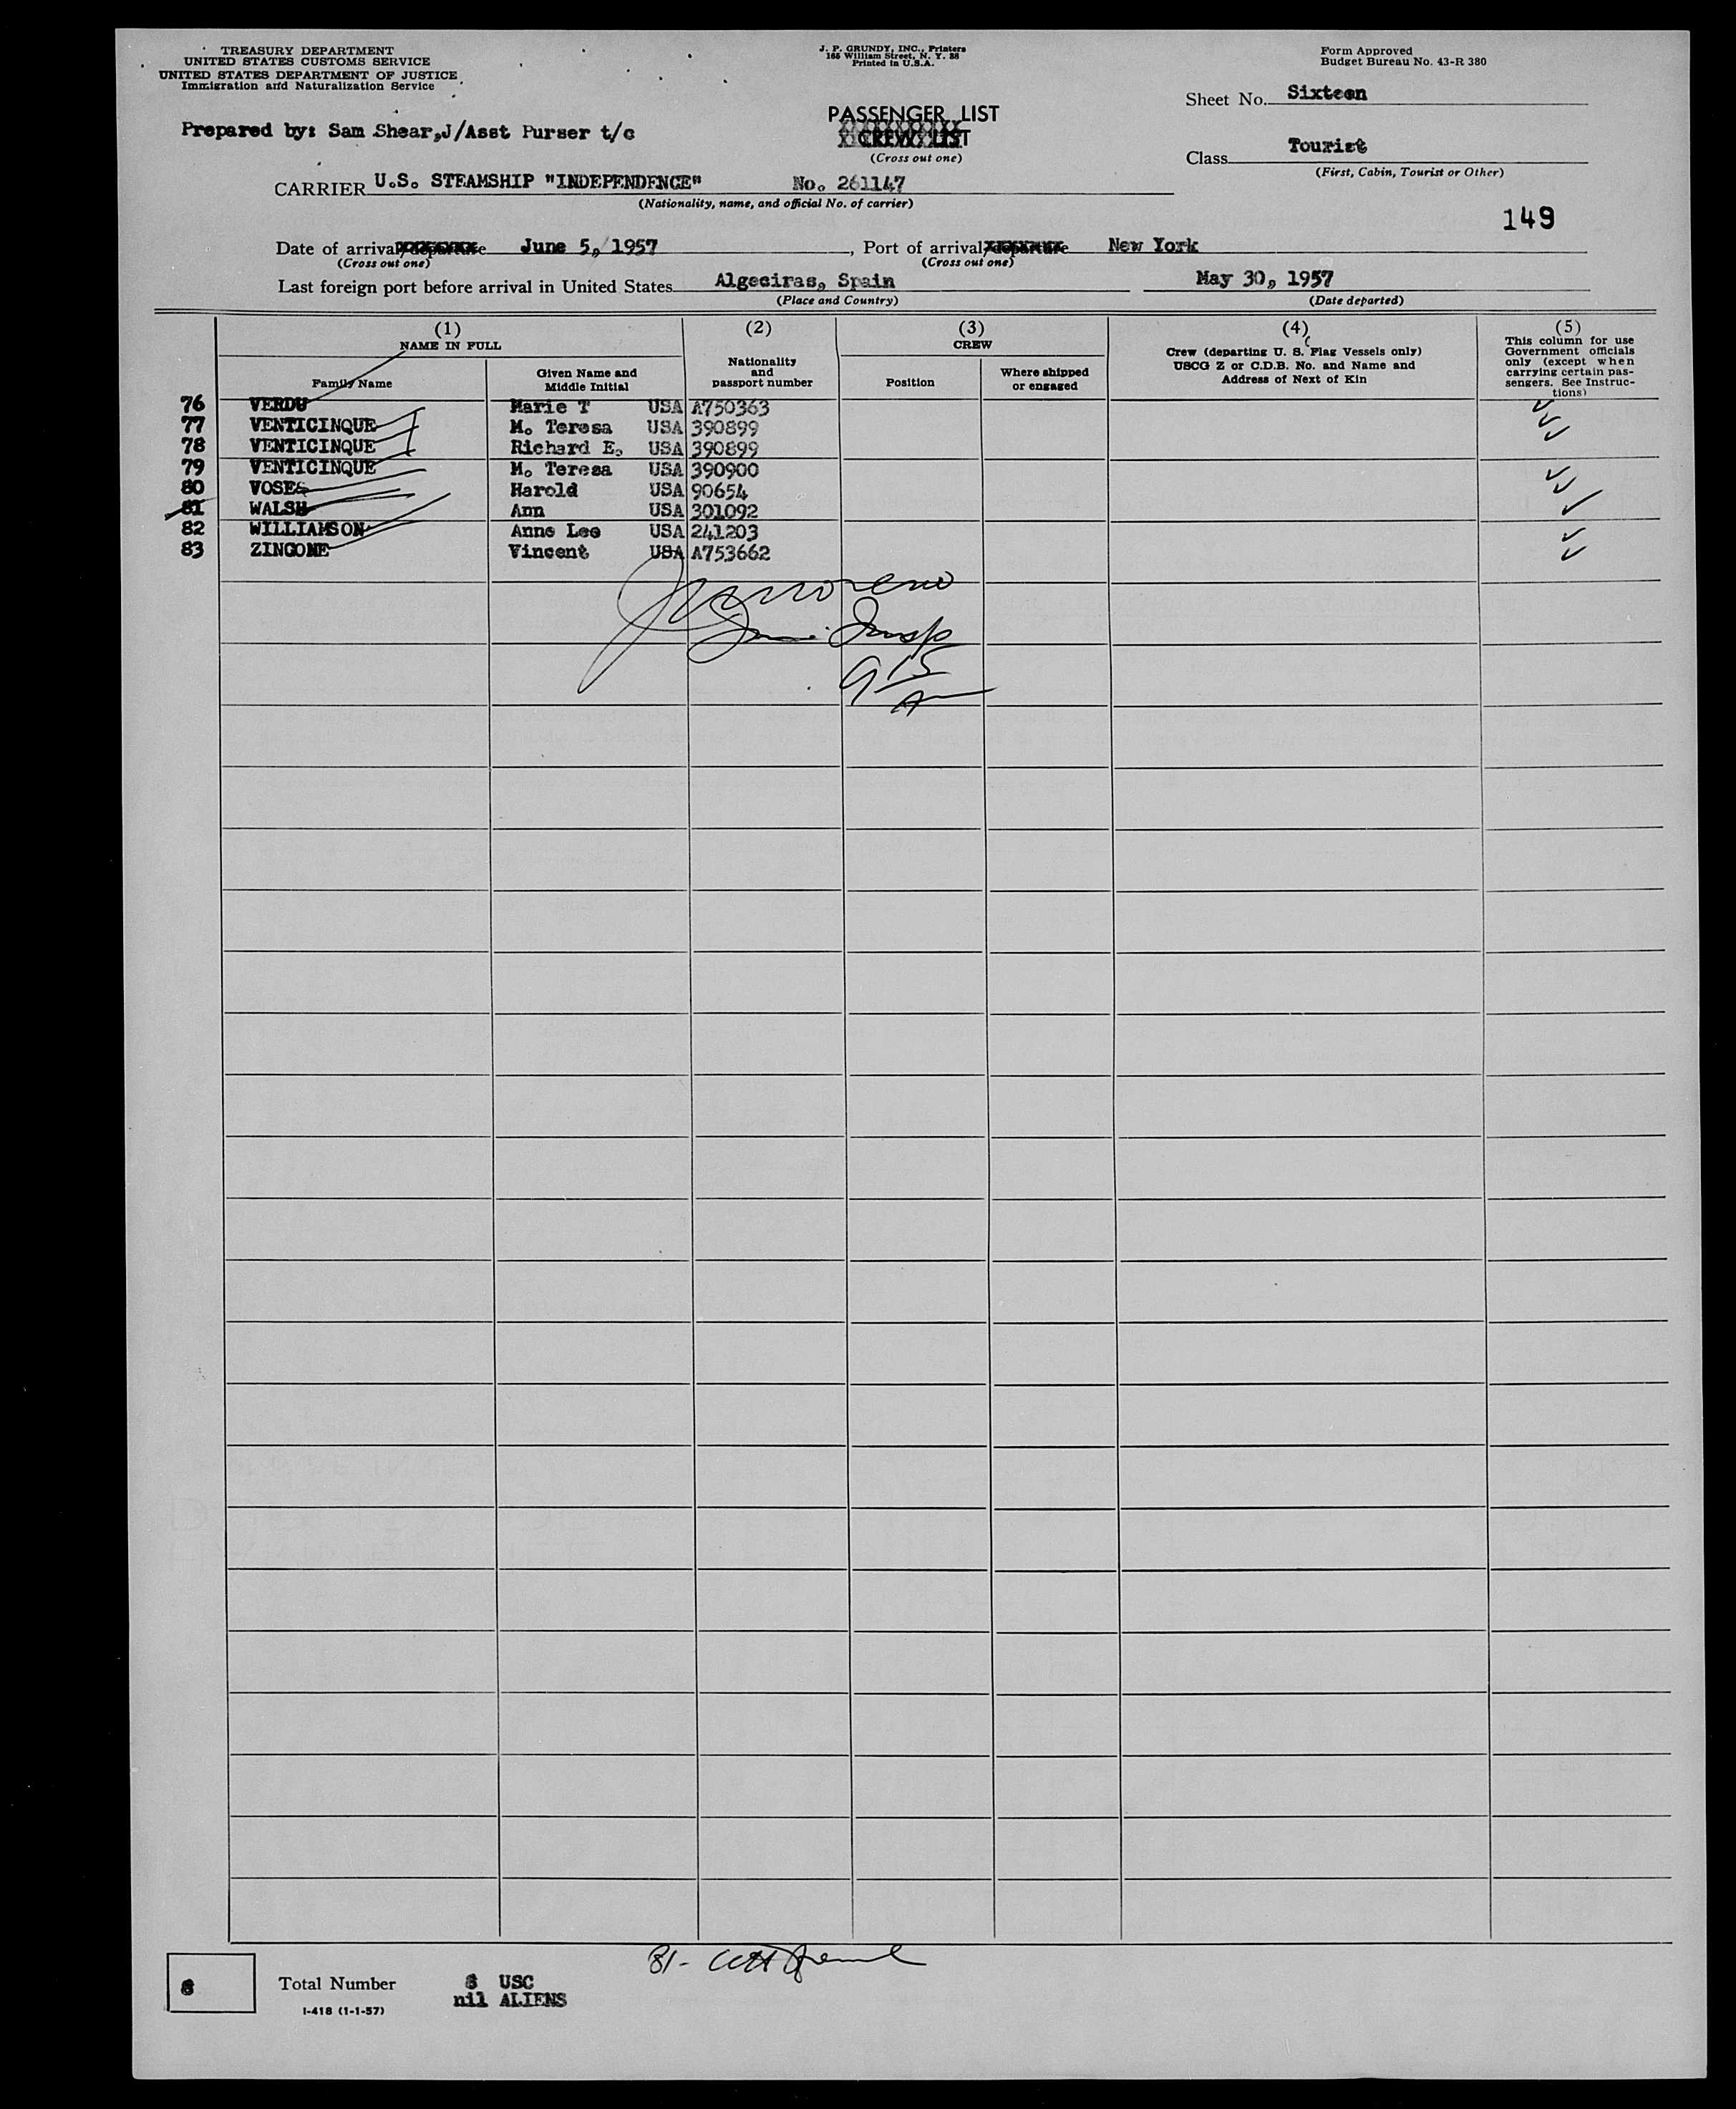 TREASURY DEPARTMENT
UNITED STATES CUSTOMS SERVICE
UNITED STATES DEPARTMENT OF JUSTICE
Immigration and Naturalization Service
J. P. GRUNDY, INC., Printers
165 William Street, N. Y. 38
Printed in U.S.A.
Form Approved
Budget Bureau No. 43-R 380
Sheet No. Sixteen
Prepared by: Sam Shear,J/Asst Purser t/c
PASSENGER LIST
CREW LIST
(Cross out one)
Class Tourist
(First, Cabin, Tourist or Other)
CARRIER U.S. STEAMSHIP "INDEPENDENCE" No. 261147
(Nationality, name, and official No. of carrier)
149
Date of arrival/departure June 5, 1957, Port of arrival/departure New York
(Cross out one) (Cross out one)
Last foreign port before arrival in United States Algeciras, Spain May 30, 1957
(Place and Country) (Date departed)
(1) (2) (3) (4) (5)
NAME IN FULL
Family Name
Given Name and
Middle Initial
Nationality
and
passport number
CREW
Position
Where shipped
or engaged
Crew (departing U. S. Flag Vessels only)
USCG Z or C.D.B. No. and Name and
Address of Next of Kin
This column for use
Government officials
only (except when
carrying certain pas-
sengers. See Instruc-
tions)
76 VERDU Marie T USA A750363
77 VENTICINQUE M. Teresa USA 390899
78 VENTICINQUE Richard E. USA 390899
79 VENTICINQUE M. Teresa USA 390900
80 VOSES Harold USA 90654
81 WALSH Ann USA 301092
82 WILLIAMSON Anne Lee USA 241203
83 ZINGONE Vincent USA A753662
Insp
9 15
81-
8 Total Number 8 USC
I-418 (1-1-57) nil ALIENS